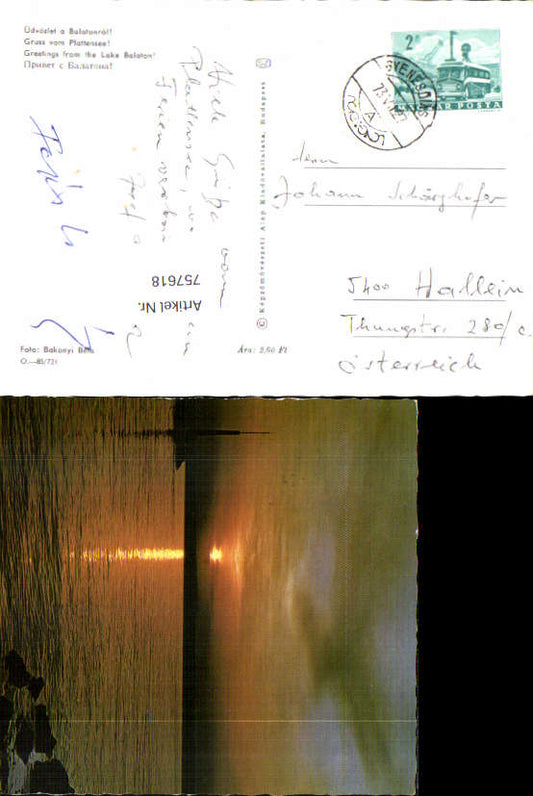 Üdvözlet a Balatonról!
Gruss vom Plattensee!
Greetings from the Lake Balaton!
Привет с Балатона!
Viele Grüße vom
Plattensee, wo
Artikel Nr.
757618
Foto: Bakonyi Béla
O.—85/731
Ára: 2,60 Ft
© Képzőművészeti Alap Kiadóvállalata, Budapest
2
MAGYAR POSTA
Herrn
Johann Schörghofer
5400 Hallein
Thunstr. 280/c
Österreich